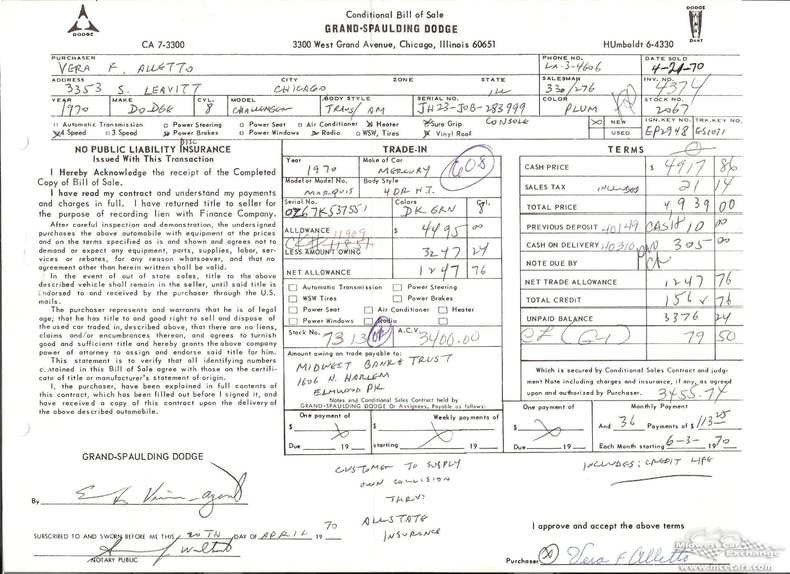 Conditional Bill of Sale
DODGE
GRAND-SPAULDING DODGE
DODGE
DART
CA 7-3300
3300 West Grand Avenue, Chicago, Illinois 60651
HUmboldt 6-4330
PURCHASER
VERA F. ALLETTO
PHONE NO.
LA-3-4606
DATE SOLD
4-20-70
ADDRESS
3353 S. LEAVITT
CITY
CHICAGO
ZONE
STATE
ILL
SALESMAN
330/276
INV. NO.
4374
YEAR
1970
MAKE
DODGE
CYL.
8
MODEL
CHALLENGER
BODY STYLE
TRANS/AM
SERIAL NO.
JH23-JOB-283999
COLOR
PLUM
STOCK NO.
2067
Automatic Transmission Power Steering Power Seat Air Conditioner Heater Sure Grip CONSOLE
4 Speed 3 Speed Power Brakes Power Windows Radio WSW, Tires Vinyl Roof
DISC
NEW
USED
IGN.KEY NO.
EP2948
TRK.KEY NO.
ES1071
NO PUBLIC LIABILITY INSURANCE
Issued With This Transaction
I Hereby Acknowledge the receipt of the Completed
Copy of Bill of Sale.
I have read my contract and understand my payments
and charges in full. I have returned title to seller for
the purpose of recording lien with Finance Company.
After careful inspection and demonstration, the undersigned
purchases the above automobile with equipment at the prices
and on the terms specified as is shown and agrees not to
demand or expect any equipment, parts, supplies, labor, ser-
vices or rebates, for any reason whatsoever, and that no
agreement other than herein written shall be valid.
In the event of out of state sales, title to the above
described vehicle shall remain in the seller, until said title is
endorsed to and received by the purchaser through the U.S.
mails.
The purchaser represents and warrants that he is of legal
age; that he has title to and good right to sell and dispose of
the used car traded in, described above, that there are no liens,
claims and/or encumbrances thereon, and agrees to turnish
good and sufficient title and hereby grants the above company
power of attorney to assign and endorse said title for him.
This statement is to verify that all identifying numbers
contained in this Bill of Sale agree with those on the certifi-
cate of title or manufacturer's statement of origin.
I, the purchaser, have been explained in full contents of
this contract, which has been filled out before I signed it, and
have received a copy of this contract upon the delivery of
the above described automobile.
GRAND-SPAULDING DODGE
By
SUBSCRIBED TO AND SWORN BEFORE ME THIS 20TH DAY OF APRIL 19 70
NOTARY PUBLIC
TRADE-IN
608
Year
1970
Make of Car
MERCURY
Model or Model No.
MARQUIS
Body Style
4 DR H.T.
Serial No.
0Z67K537551
Colors
DK GRN
Cyl.
8
ALLOWANCE 4495 00
LESS AMOUNT OWING 3247 24
NET ALLOWANCE 1247 76
Automatic Transmission Power Steering
WSW Tires Power Brakes
Power Seat Air Conditioner Heater
Power Windows Radio
Stock No. A.C.V. 3400.00
Amount owing on trade payable to:
MIDWEST BANK & TRUST
1606 N. HARLEM
ELMWOOD PK
Notes and Conditional Sales Contract held by
GRAND-SPAULDING DODGE Or Assignees, Payable as follows:
One payment of
$
Due 19
Weekly payments of
$
starting 19
CUSTOMER TO SUPPLY
OWN COLLISION
THRU:
ALLSTATE
INSURANCE
TERMS
CASH PRICE $ 4917 86
SALES TAX INCLUDED 21 14
TOTAL PRICE 4939 00
PREVIOUS DEPOSIT 40149 CASH 10 00
CASH ON DELIVERY 40310 305 00
NOTE DUE BY
NET TRADE ALLOWANCE 1247 76
TOTAL CREDIT 1562 76
UNPAID BALANCE 3376 24
79 50
Which is secured by Conditional Sales Contract and judg-
ment Note including charges and insurance, if any, as agreed
upon and authorized by Purchaser. 3455.74
One payment of
$
Due 19
Monthly Payment
And 36 Payments of $ 113 25
Each Month starting 6-3- 19 70
INCLUDES: CREDIT LIFE
I approve and accept the above terms
Purchaser X Vera F Alletto
Midwest Car Exchange
www.mcecars.com